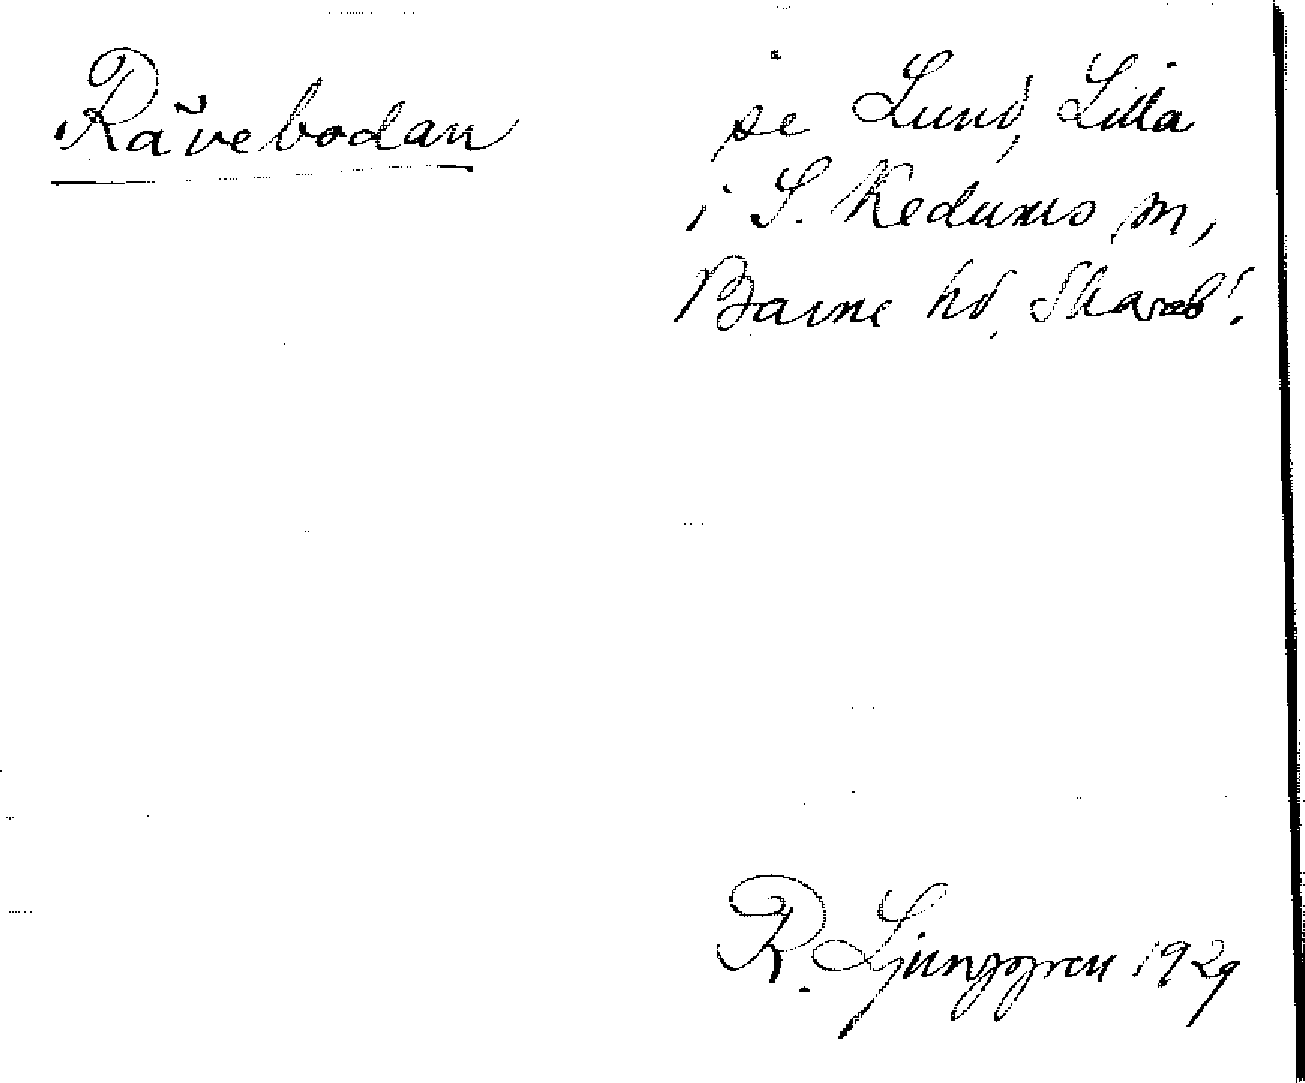 Rävebodan
se Lund, Lilla
i S. Kedums sn,
Barne hd, Skarab!
R. Ljunggren 1929